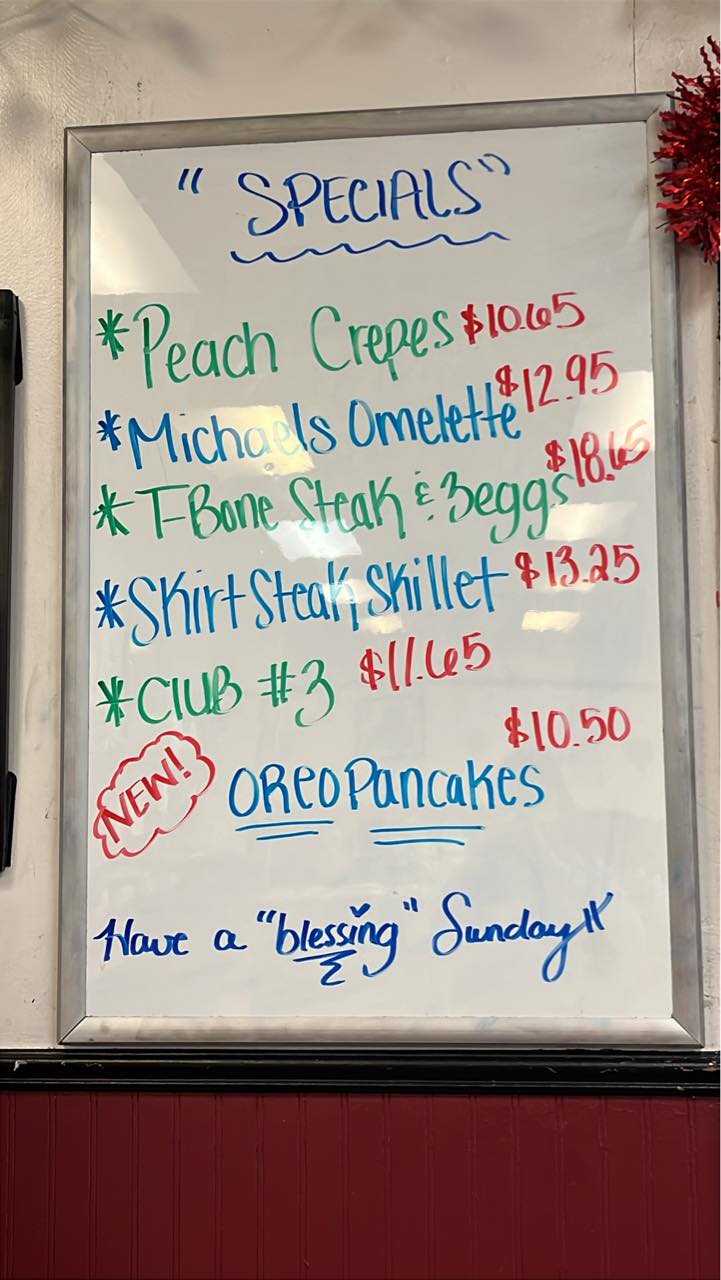 "SPECIALS"
*Peach Crepes $10.65
*Michaels Omelette $12.95
*T-Bone Steak & 3eggs $18.65
*Skirt Steak Skillet $13.25
*Club #3 $11.65
NEW! OREO Pancakes $10.50
Have a "blessing" Sunday!!